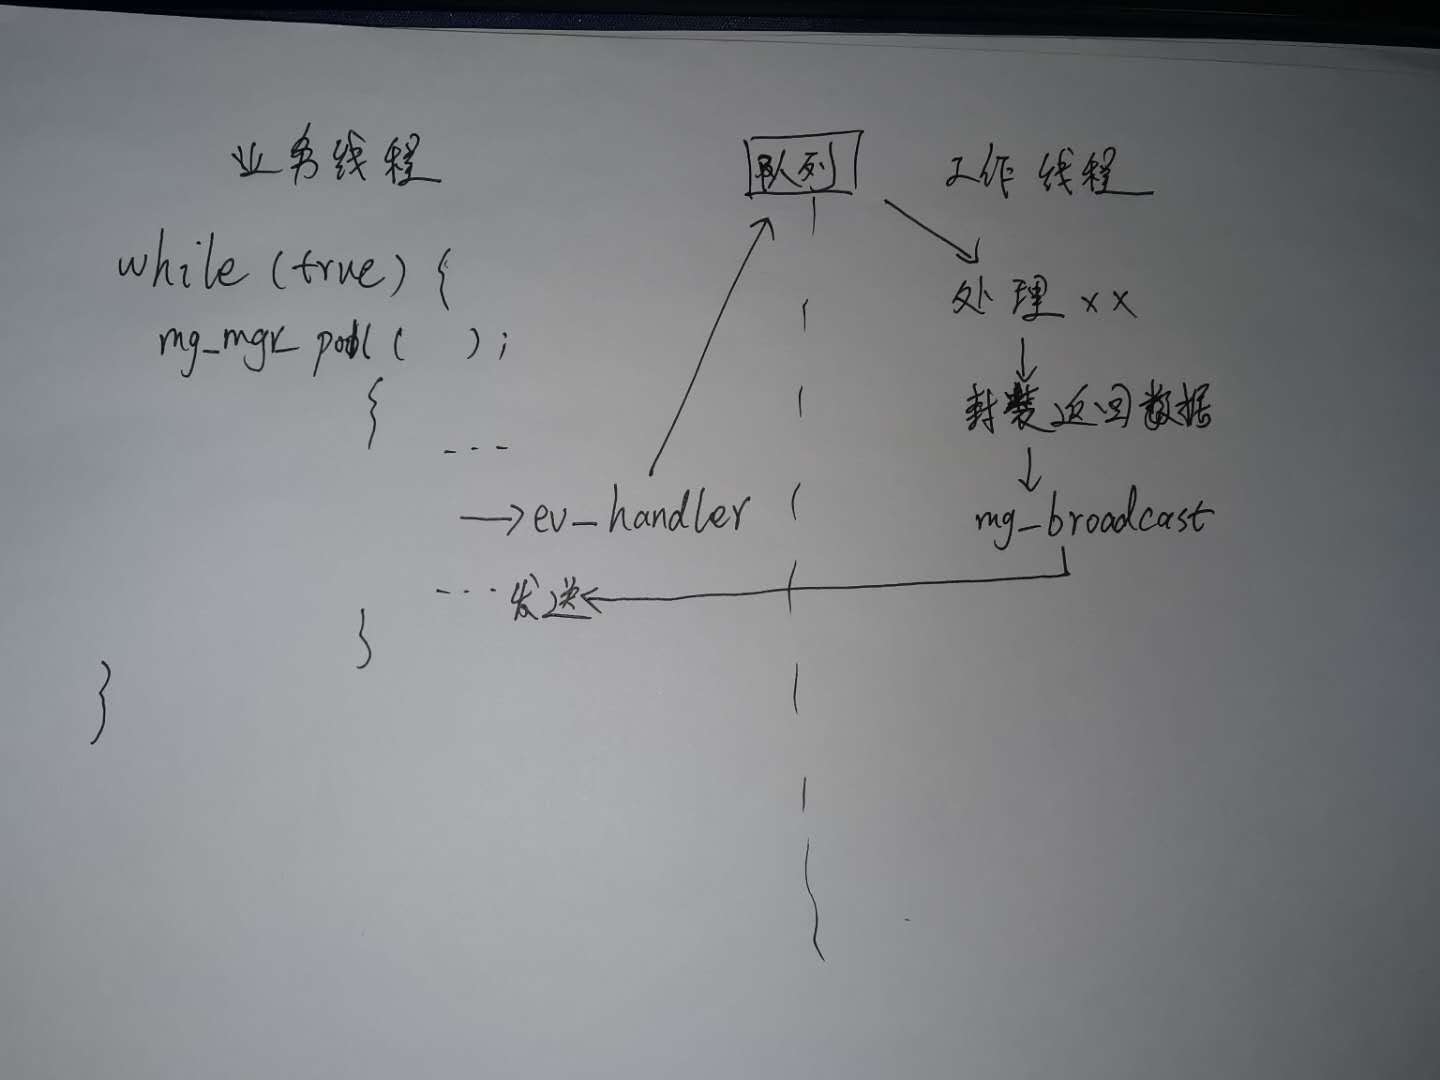 业务线程
while (true) {
mg_mgr poll ( ) ;
{
---
→ ev_handler
... 发送
}
}
队列
工作线程
处理 x x
封装返回数据
mg_broadcast